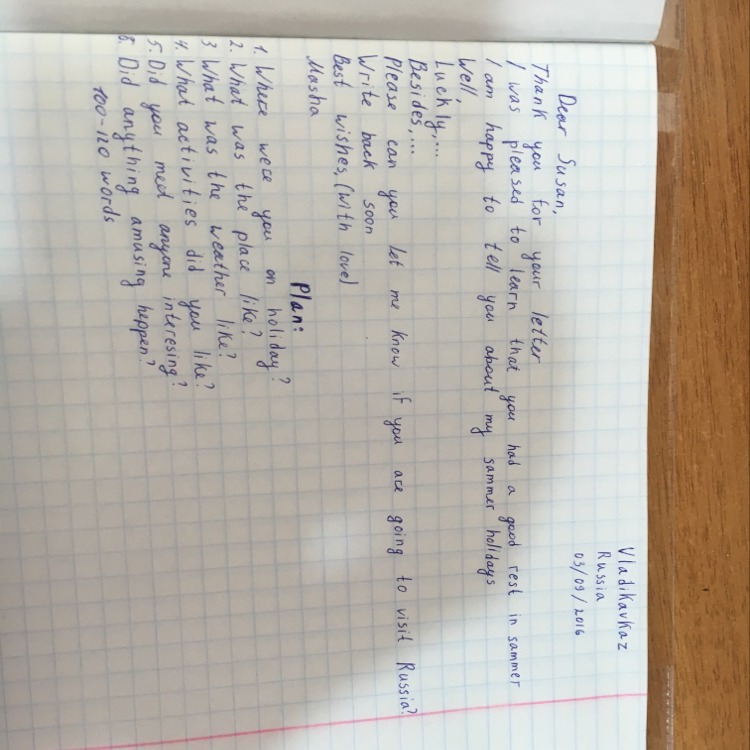 Vladikavkaz
Russia
03/09/2016
Dear Susan,
Thank you for your letter
I was pleased to learn that you had a good rest in sammer
I am happy to tell you about my sammer holidays
Well,
Luckly,...
Besides,...
Please can you let me know if you are going to visit Russia?
Write back soon
Best wishes, (with love)
Masha
Plan:
1. Where were you on holiday?
2. What was the place like?
3 What was the weather like?
4. What activities did you like?
5. Did you meet anyone interesing?
6. Did anything amusing heppen?
100-120 words